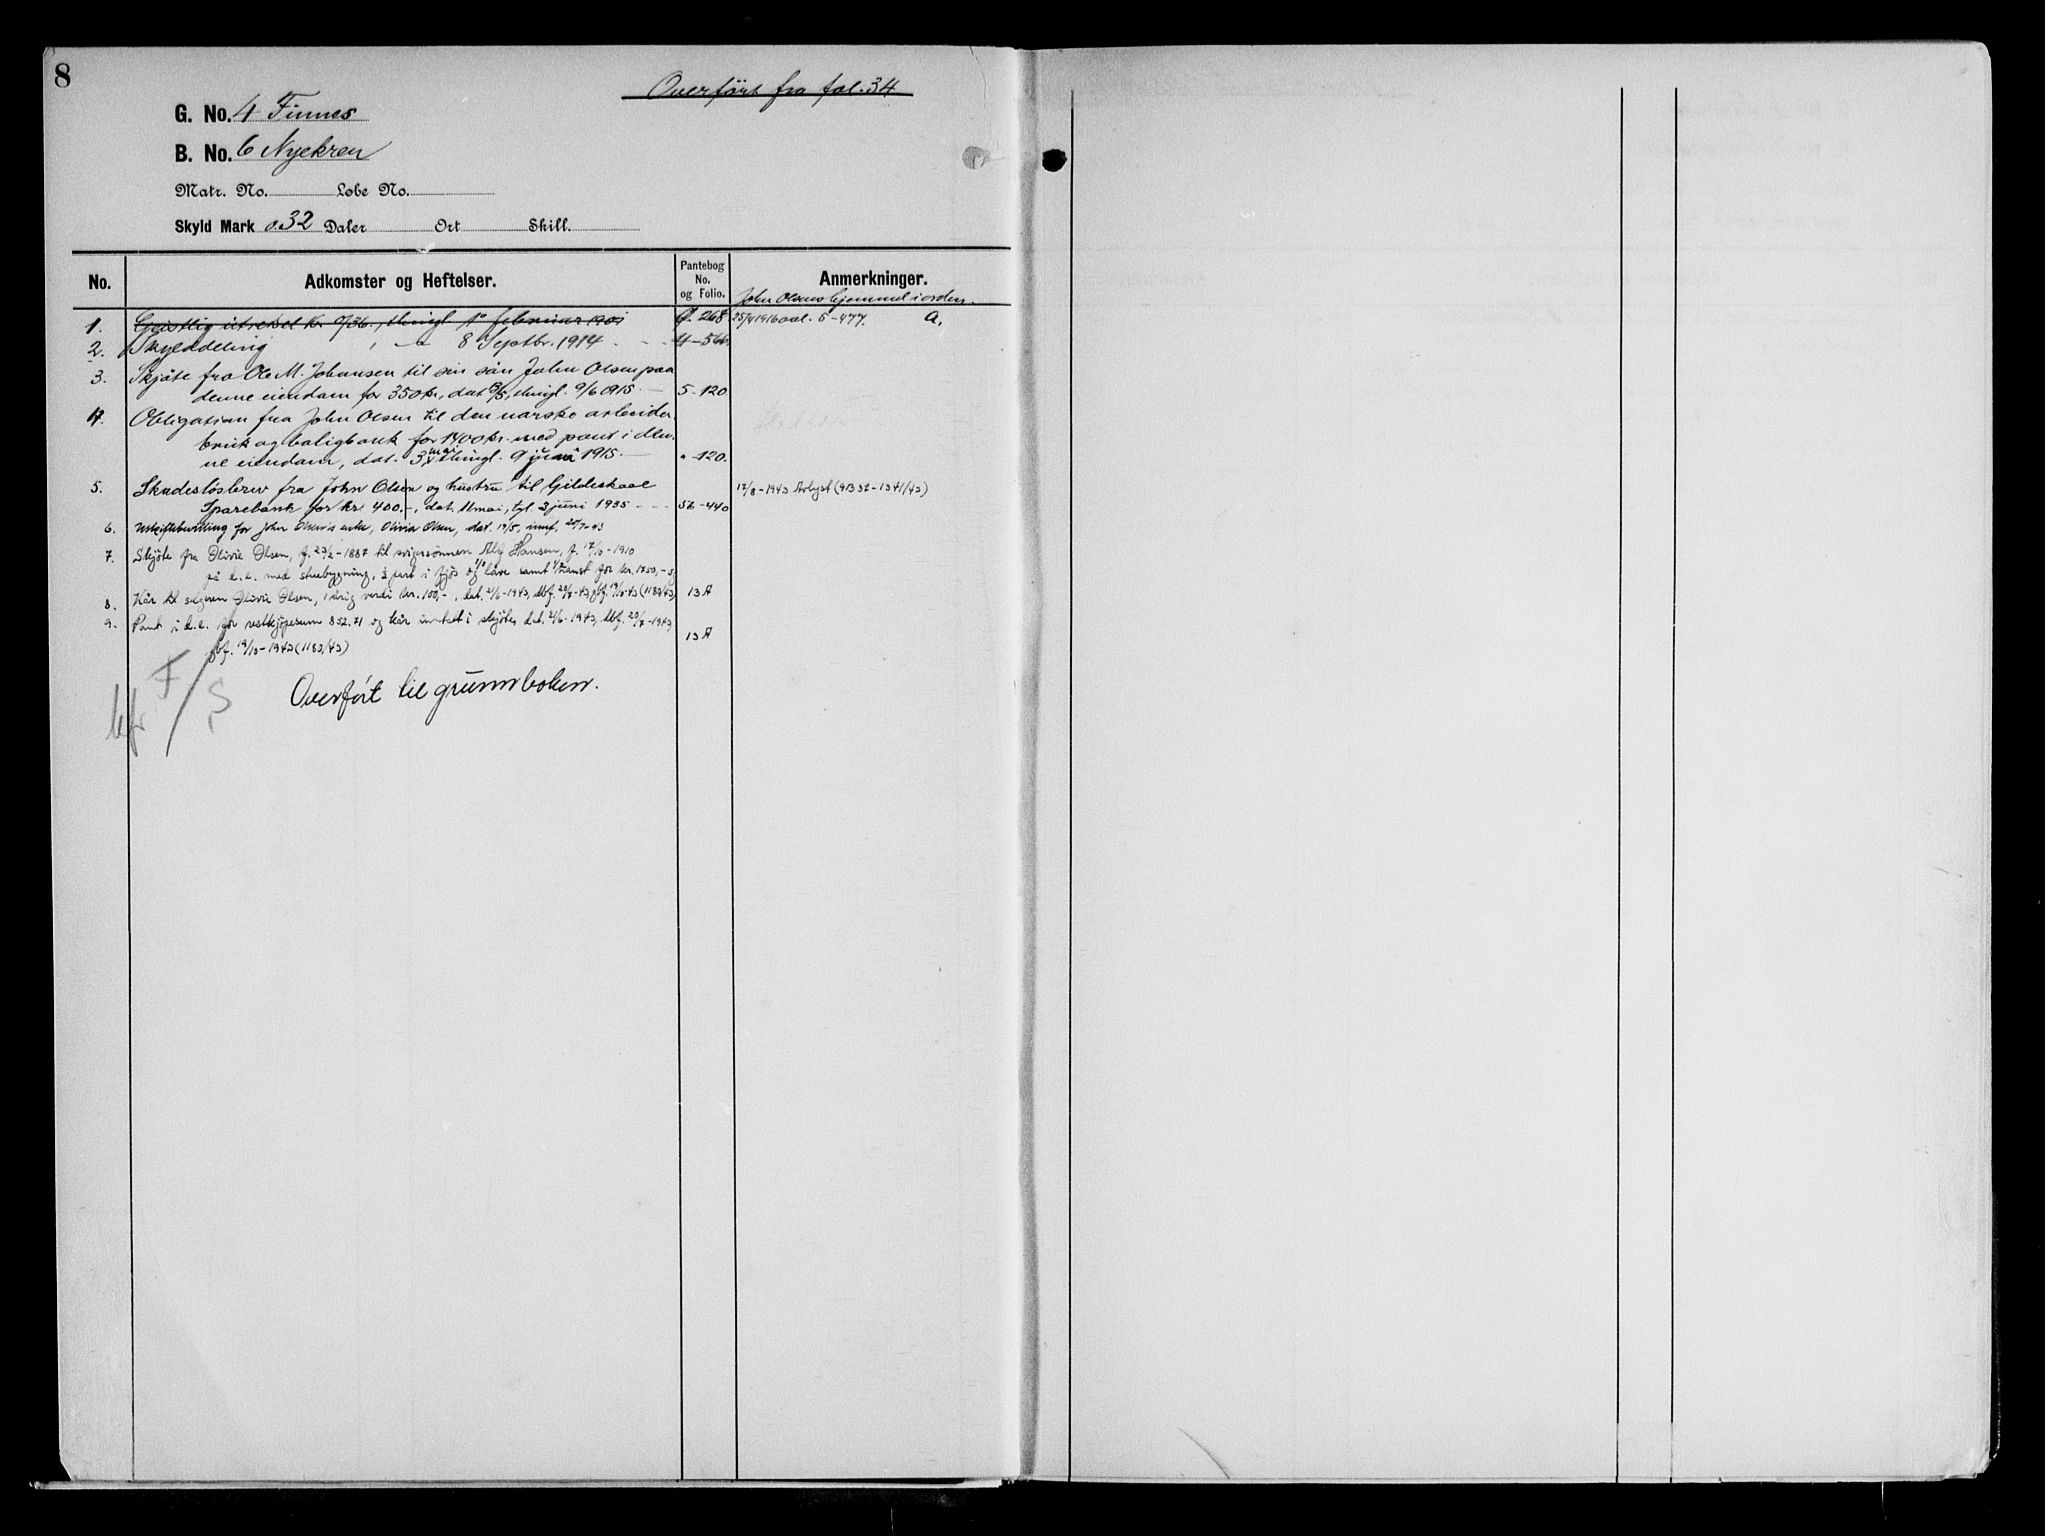 8
Overført fra fol. 34
G. No. 4 Finnes
B. No. 6 Nyekren
Matr. No. Løbe No.
Skyld Mark 0.32 Daler Ort Skill.
No. Adkomster og Heftelser. Pantebog No. og Folio. Anmerkninger.
John Olsens hjemmel i orden.
1. Geistlig utreksel kr. 0/36., thingl 1 februar 1901 268 25/4 1916 5-477. a.
2. Skylddeling " — 8 Septbr. 1914 4-566
3. Skjøte fra Ole M. Johansen til sin søn John Olsen paa
denne eiendom for 350 kr, dat /5, thingl. 9/6 1915 5-120.
4. Obligasion fra John Olsen til den norske arbeider-
bruk og boligbank for 1400 kr. med pant i den-
ne eiendom, dat. 3 mai thingl. 9 juni 1915. " -120.
5. Skadesløsbrev fra John Olsen og hustru til Gildeskaal 17/8-1943 Avlyst (91332-1341/43)
Sparebank for kr. 400.-, dat. 11 mai, tgl. 3 juni 1935 5b-440
6. Uskiftebevilling for John Olsens enke, Olivia Olsen, dat. 17/5, innf. 20/7-43
7. Skjøte fra Olivie Olsen, f. 23/2-1887 til svigersønnen Alf Hansen, f. 17/10-1910
på d.e. med stuebygning, ½ part i fjøs og låve samt for kr. 1750,- og
8. Kår til selgeren Olivie Olsen, i årlig verdi kr. 100,-, dat. 21/6-1943, dbf. 20/7-43 gbf. 19/10-43 (1183/43) 13 A
9. Pant i d.e. for restkjøpesum 852.71 og kår inntatt i skjøte, dat. 21/6-1943, dbf. 20/7-1943,
gbf. 19/10-1943 (1183/43) 13 A
kfr F/S
Overført til grunnboken.